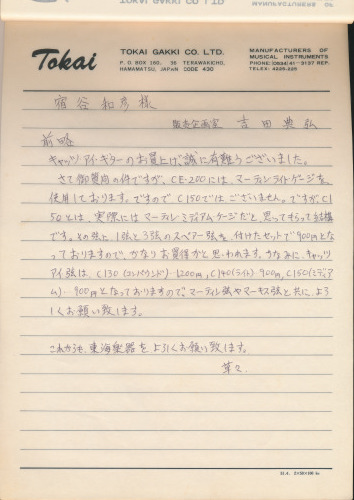 Tokai
TOKAI GAKKI CO. LTD.
P. O. BOX 150, 36 TERAWAKICHO,
HAMAMATSU, JAPAN CODE 430
MANUFACTURERS OF
MUSICAL INSTRUMENTS
PHONE: (0534) 41-3137 REP.
TELEX: 4225-225
宿谷和彦様
販売企画室 吉田典弘
前略
キャッツアイ・ギターのお買上げ誠に有難うございました。
さて御質問の件ですが、CE-200には、マーチンライトゲージを
使用しております。ですのでC150ではございません。ですが、C1
50とは、実際にはマーチン・ミディアムゲージだと思ってもらって結構
です。その弦に、1弦と3弦のスペアー弦を付けたセットで900円とな
っておりますので、かなりお買得かと思われます。ちなみに、キャッツ
アイ弦は、C130(コンパウンド)…1200円、C140(ライト)…900円、C150(ミディア
ム)…900円となっておりますので、マーチン弦やマーキス弦と共に、よろ
しくお願い致します。
これからも、東海楽器を、よろしくお願い致します。
草々